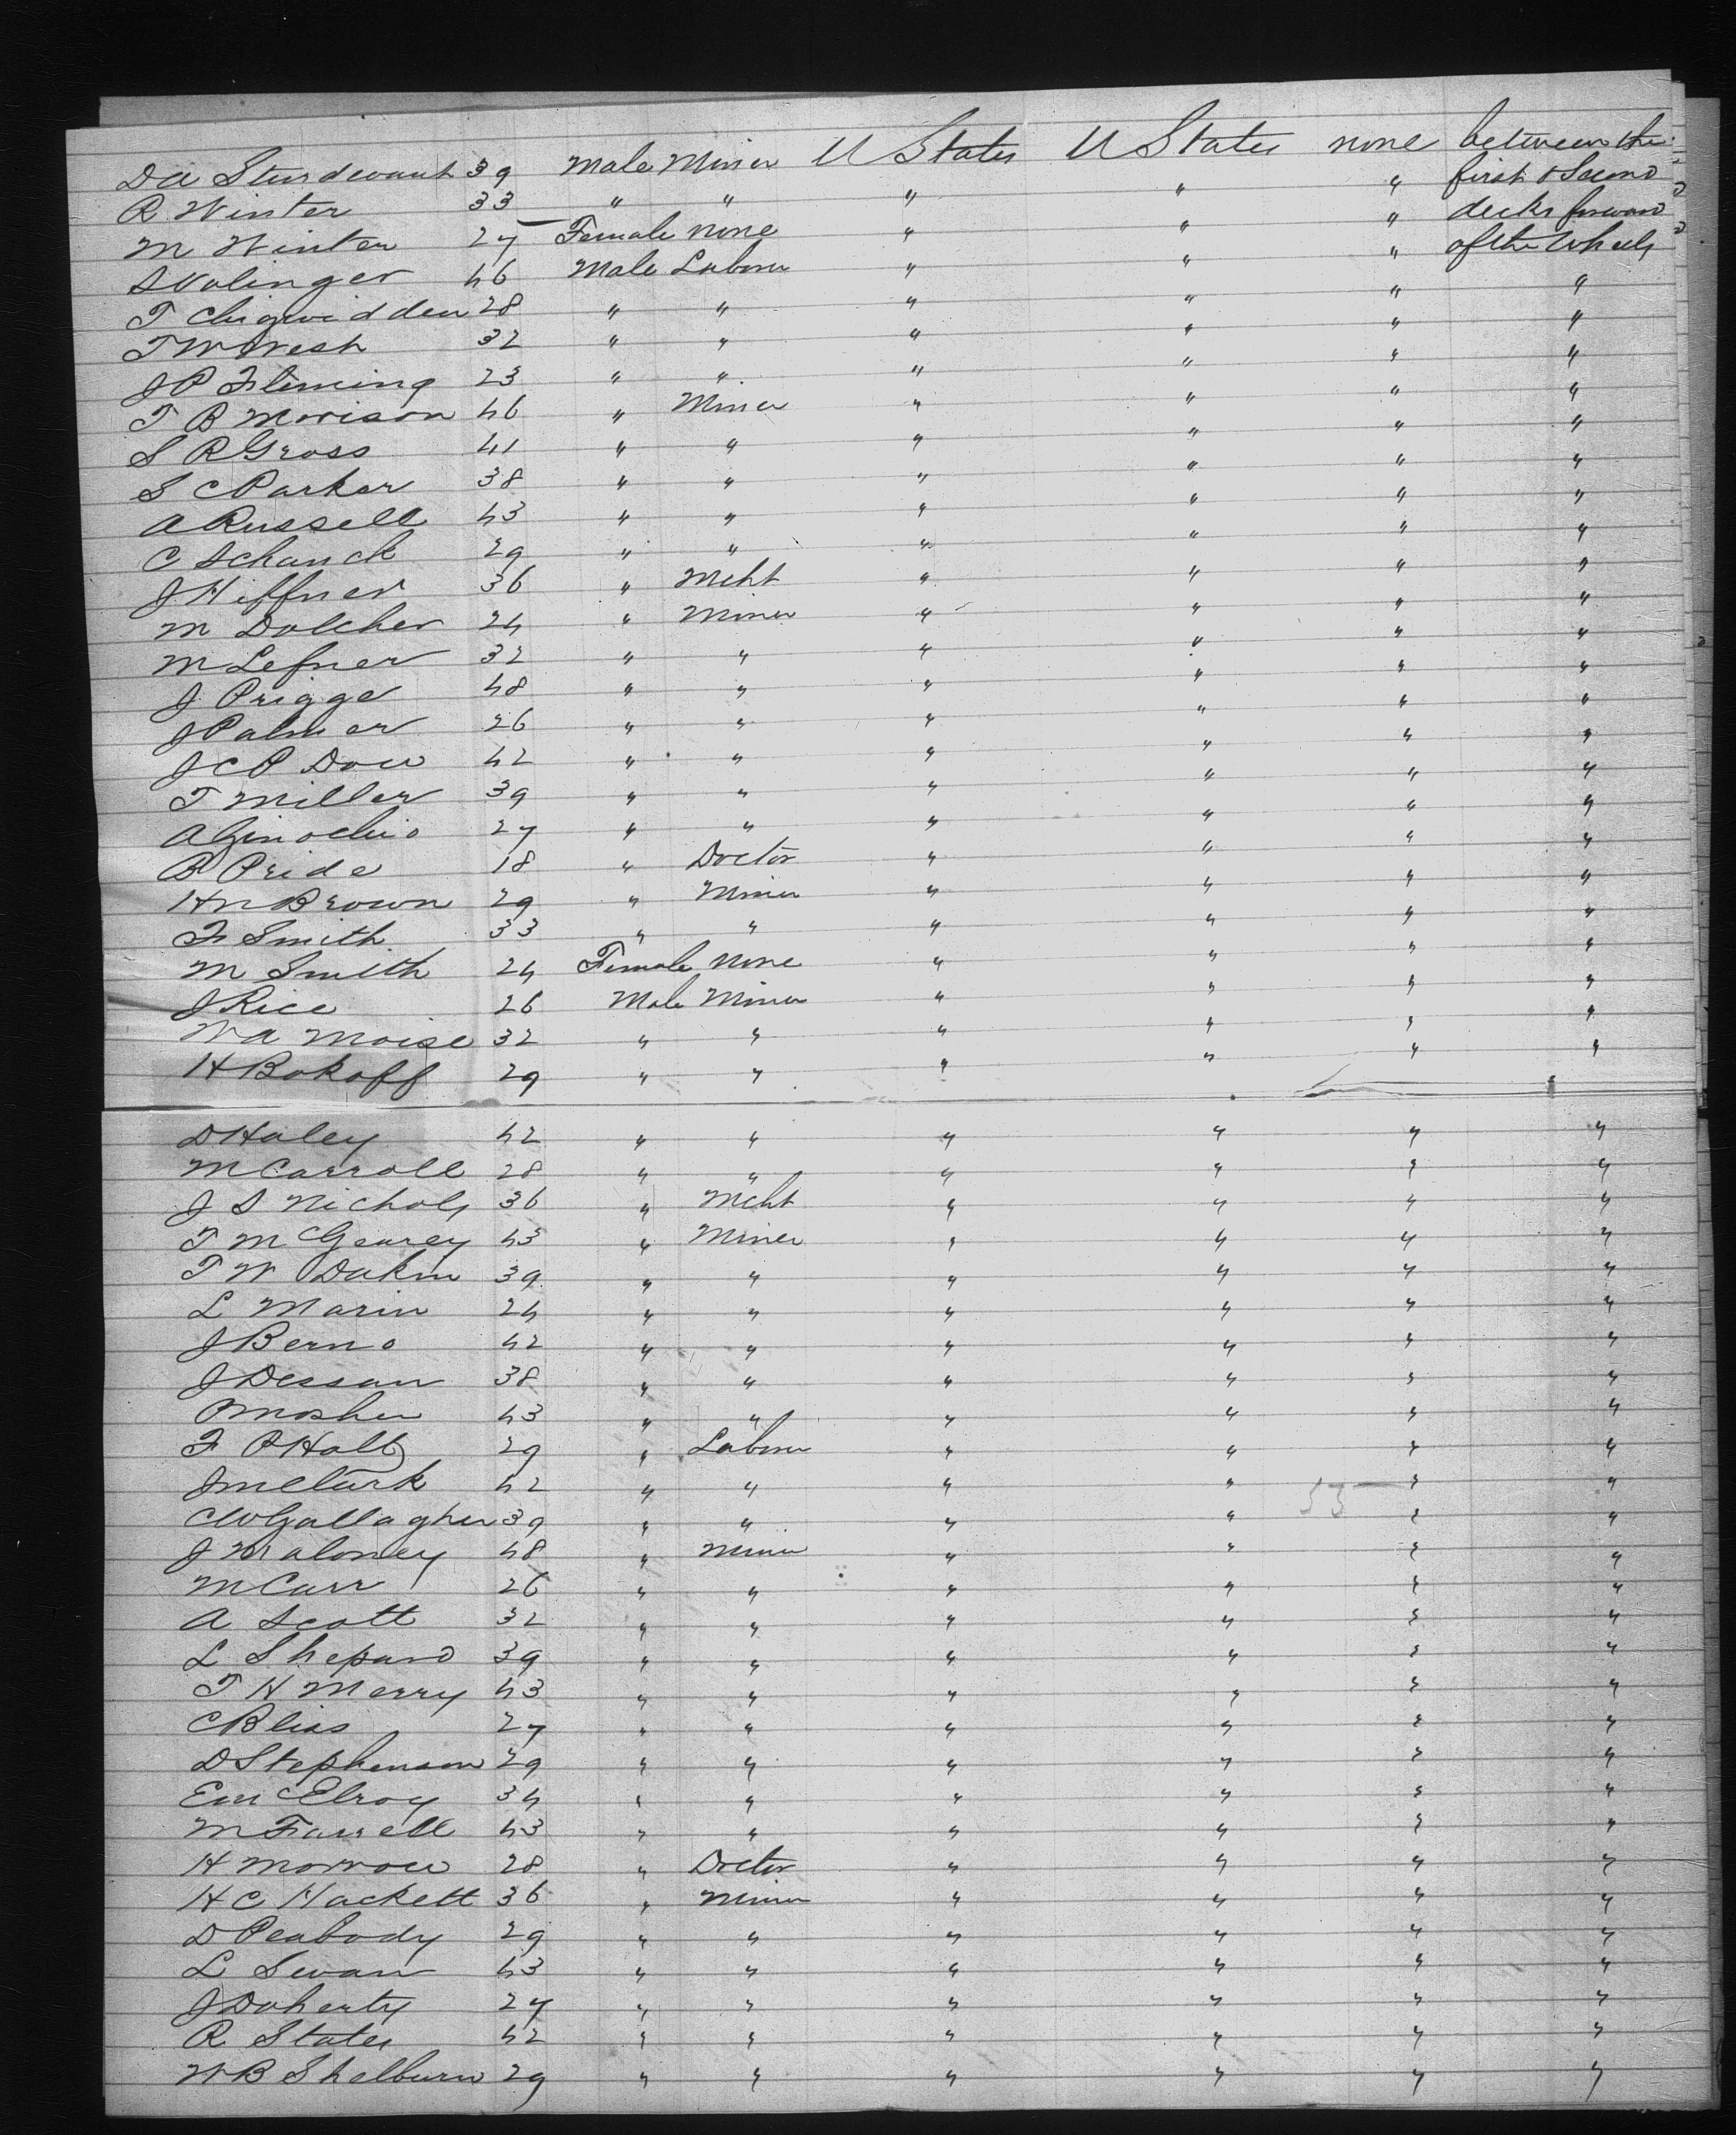 D A Sturdevant 39 Male Miner U States U States none between the
R Winter 33 " " " " " first & Second
M Winter 27 Female none " " " decks forward
S Volinger 46 Male Labour " " " of the Wheels
T Chigwidden 28 " " " " " "
T W West 32 " " " " " "
J P Fleming 23 " " " " " "
T B Morison 46 " Miner " " " "
S R Gross 41 " " " " " "
S C Parker 38 " " " " " "
A Russell 43 " " " " " "
C Schanck 29 " " " " " "
J Hiffner 36 " Mcht " " " "
M Dolcher 24 " Miner " " " "
M Lefner 32 " " " " " "
J Prigge 48 " " " " " "
J Palmer 26 " " " " " "
J C P Dow 42 " " " " " "
T Miller 39 " " " " " "
A Ginochio 27 " " " " " "
B Pride 18 " Doctor " " " "
H N Brown 29 " Miner " " " "
F Smith 33 " " " " " "
M Smith 24 Female none " " " "
J Rice 26 Male Miner " " " "
W A Moise 32 " " " " " "
H Bokoff 29 " " " " " "
D Haley 42 " " " " " "
M Carroll 28 " " " " " "
J S Nichols 36 " Mcht " " " "
T McGearey 43 " Miner " " " "
T W Dakin 39 " " " " " "
L Marin 24 " " " " " "
J Berno 42 " " " " " "
J Dessau 38 " " " " " "
P Mosher 43 " " " " " "
F P Hall 29 " Labour " " " "
J M Clark 42 " " " " " "
C W Gallagher 39 " " " " " "
J Maloney 48 " Miner " " " "
M Carr 26 " " " " " "
A Scott 32 " " " " " "
L Shepard 39 " " " " " "
T H Merry 43 " " " " " "
C Bliss 27 " " " " " "
D Stephenson 29 " " " " " "
E McElroy 34 " " " " " "
M Farrell 43 " " " " " "
H Morrow 28 " Doctor " " " "
H C Hackett 36 " Miner " " " "
D Peabody 29 " " " " " "
L Swan 43 " " " " " "
J Doherty 27 " " " " " "
R States 42 " " " " " "
W B Shelburn 29 " " " " " "